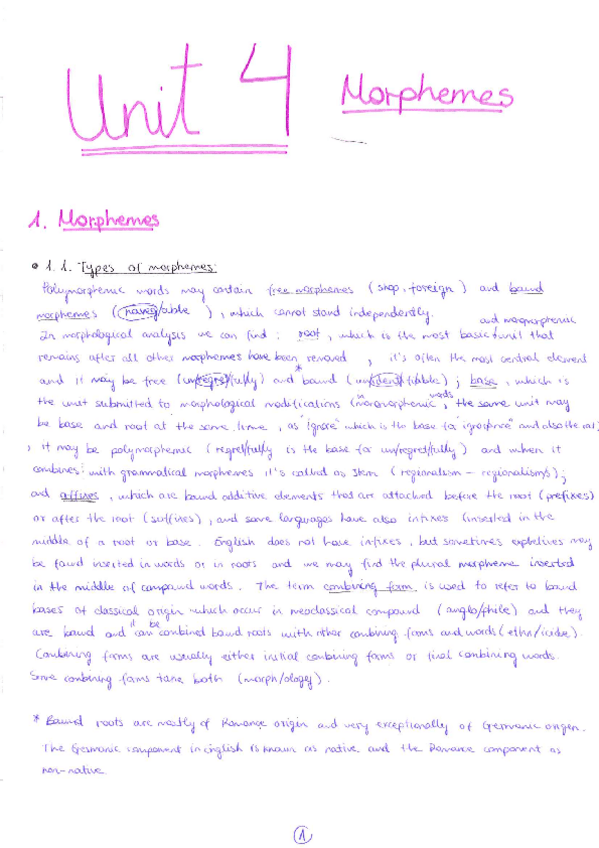 Unit 4 Morphemes
1. Morphemes
• 1.1. Types of morphemes:
Polymorphemic words may contain free morphemes (shop, foreign) and bound
morphemes (navig/able), which cannot stand independently.
and monomorphemic
In morphological analysis we can find: root, which is the most basic unit that
remains after all other morphemes have been removed, it's often the most central element
and it may be free (un/regret/fully) and * bound (un/ /able); base, which is
the unit submitted to morphological modifications (in monomorphemic words, the same unit may
be base and root at the same time, as "ignore" which is the base for "ignorance" and also the root)
, it may be polymorphemic (regret/fully is the base for un/regret/fully) and when it
combines with grammatical morphemes it's called as stem (regionalism - regionalism/s);
and affixes, which are bound additive elements that are attached before the root (prefixes)
or after the root (suffixes), and some languages have also infixes (inserted in the
middle of a root or base. English does not have infixes, but sometimes expletives may
be found inserted in words or in roots and we may find the plural morpheme inserted
in the middle of compound words. The term combining form is used to refer to bound
bases of classical origin which occur in neoclassical compound (anglo/phile) and they
are bound and it can be combined bound roots with other combining forms and words (ethn/icide).
Combining forms are usually either initial combining forms or final combining words.
Some combining forms take both (morph/ology).
* Bound roots are mostly of Romance origin and very exceptionally of Germanic origin.
The Germanic component in English is known as native and the Romance component as
non-native
1